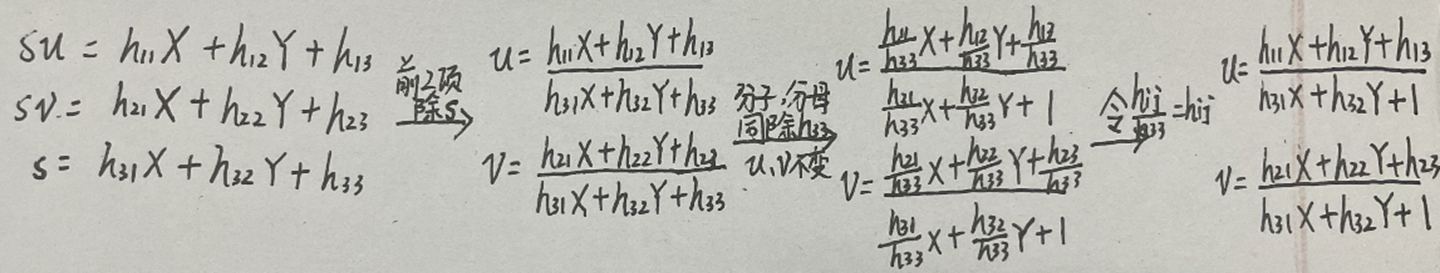 su = h₁₁X + h₁₂Y + h₁₃
sv = h₂₁X + h₂₂Y + h₂₃
s = h₃₁X + h₃₂Y + h₃₃
前2项
除s
→
u = (h₁₁X + h₁₂Y + h₁₃) / (h₃₁X + h₃₂Y + h₃₃)
v = (h₂₁X + h₂₂Y + h₂₃) / (h₃₁X + h₃₂Y + h₃₃)
分子,分母
同除h₃₃
→
u,v不变
u = (h₁₁/h₃₃ X + h₁₂/h₃₃ Y + h₁₃/h₃₃) / (h₃₁/h₃₃ X + h₃₂/h₃₃ Y + 1)
v = (h₂₁/h₃₃ X + h₂₂/h₃₃ Y + h₂₃/h₃₃) / (h₃₁/h₃₃ X + h₃₂/h₃₃ Y + 1)
令 hij/h₃₃ = hij
→
u = (h₁₁X + h₁₂Y + h₁₃) / (h₃₁X + h₃₂Y + 1)
v = (h₂₁X + h₂₂Y + h₂₃) / (h₃₁X + h₃₂Y + 1)